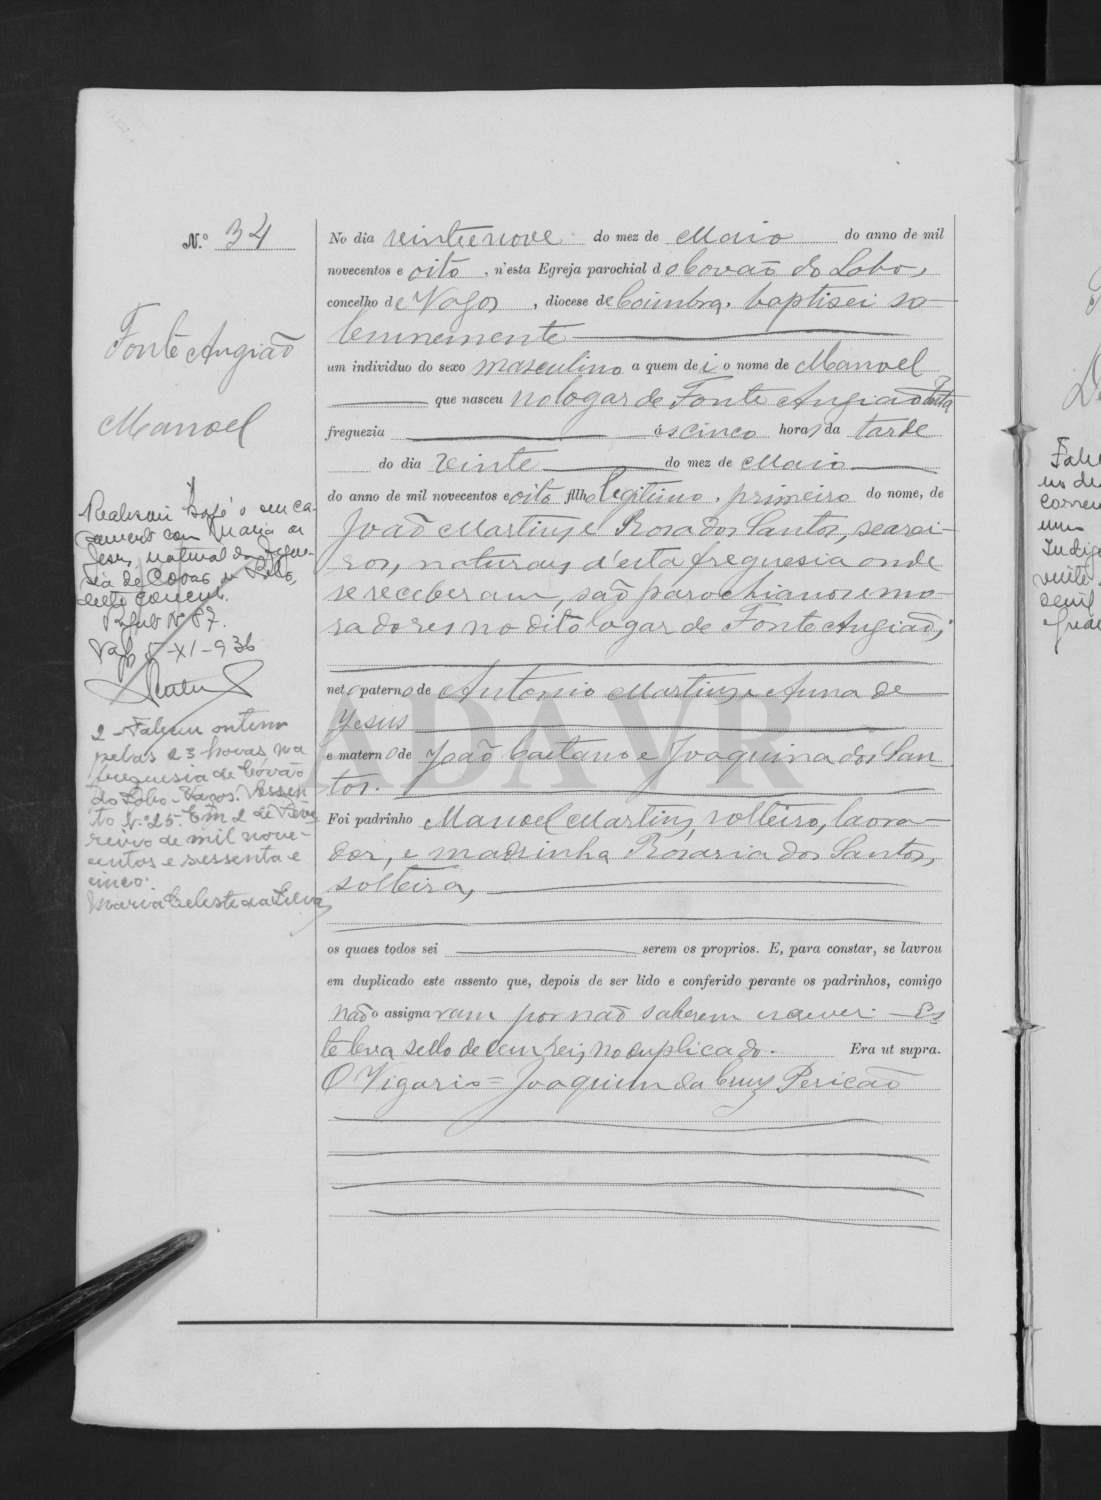 N.º 34
Fonte Angião
Manoel
Realisou hoje o seu ca-
samento com Maria de
Jesus, natural da fregue-
sia de Covão do Lobo,
deste concelho.
N.º 87.
5-XI-936
2 - Faleceu ontem
pelas 23 horas na
freguesia de Covão
do Lobo - Vagos. Assen
to N.º 25. Em 2 de Feve
reiro de mil nove-
centos e sessenta e
cinco.
Maria Celeste da Silva
No dia vinte e nove do mez de Maio do anno de mil
novecentos e oito, n'esta Egreja parochial do Covão do Lobo,
concelho de Vagos, diocese de Coimbra, baptisei so-
lemnemente
um individuo do sexo masculino a quem dei o nome de Manoel
que nasceu no logar de Fonte Angião d'esta
freguezia ás cinco horas da tarde
do dia vinte do mez de Maio
do anno de mil novecentos e oito filho legitimo, primeiro do nome, de
João Martins e Rosa dos Santos, searei-
ros, naturaes d'esta freguesia onde
se receberam, são parochianos e mo-
radores no dito logar de Fonte Angião,
neto paterno de Antonio Martins e Anna de
Jesus
e materno de João Caetano e Joaquina dos San-
tos.
Foi padrinho Manoel Martins, solteiro, lavra-
dor, e madrinha Rosaria dos Santos,
solteira,
os quaes todos sei serem os proprios. E, para constar, se lavrou
em duplicado este assento que, depois de ser lido e conferido perante os padrinhos, comigo
não o assignaram por não saberem escrever. Es
te leva sello de cem reis no duplicado. Era ut supra.
O Vigario = Joaquim da Cruz Pericão
ADAVR